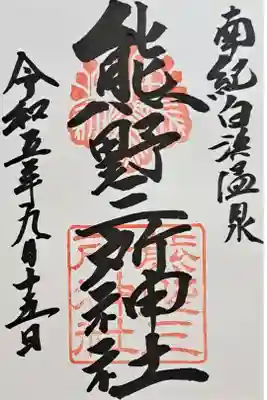 南紀白浜温泉
熊野三所神社
令和五年九月十五日